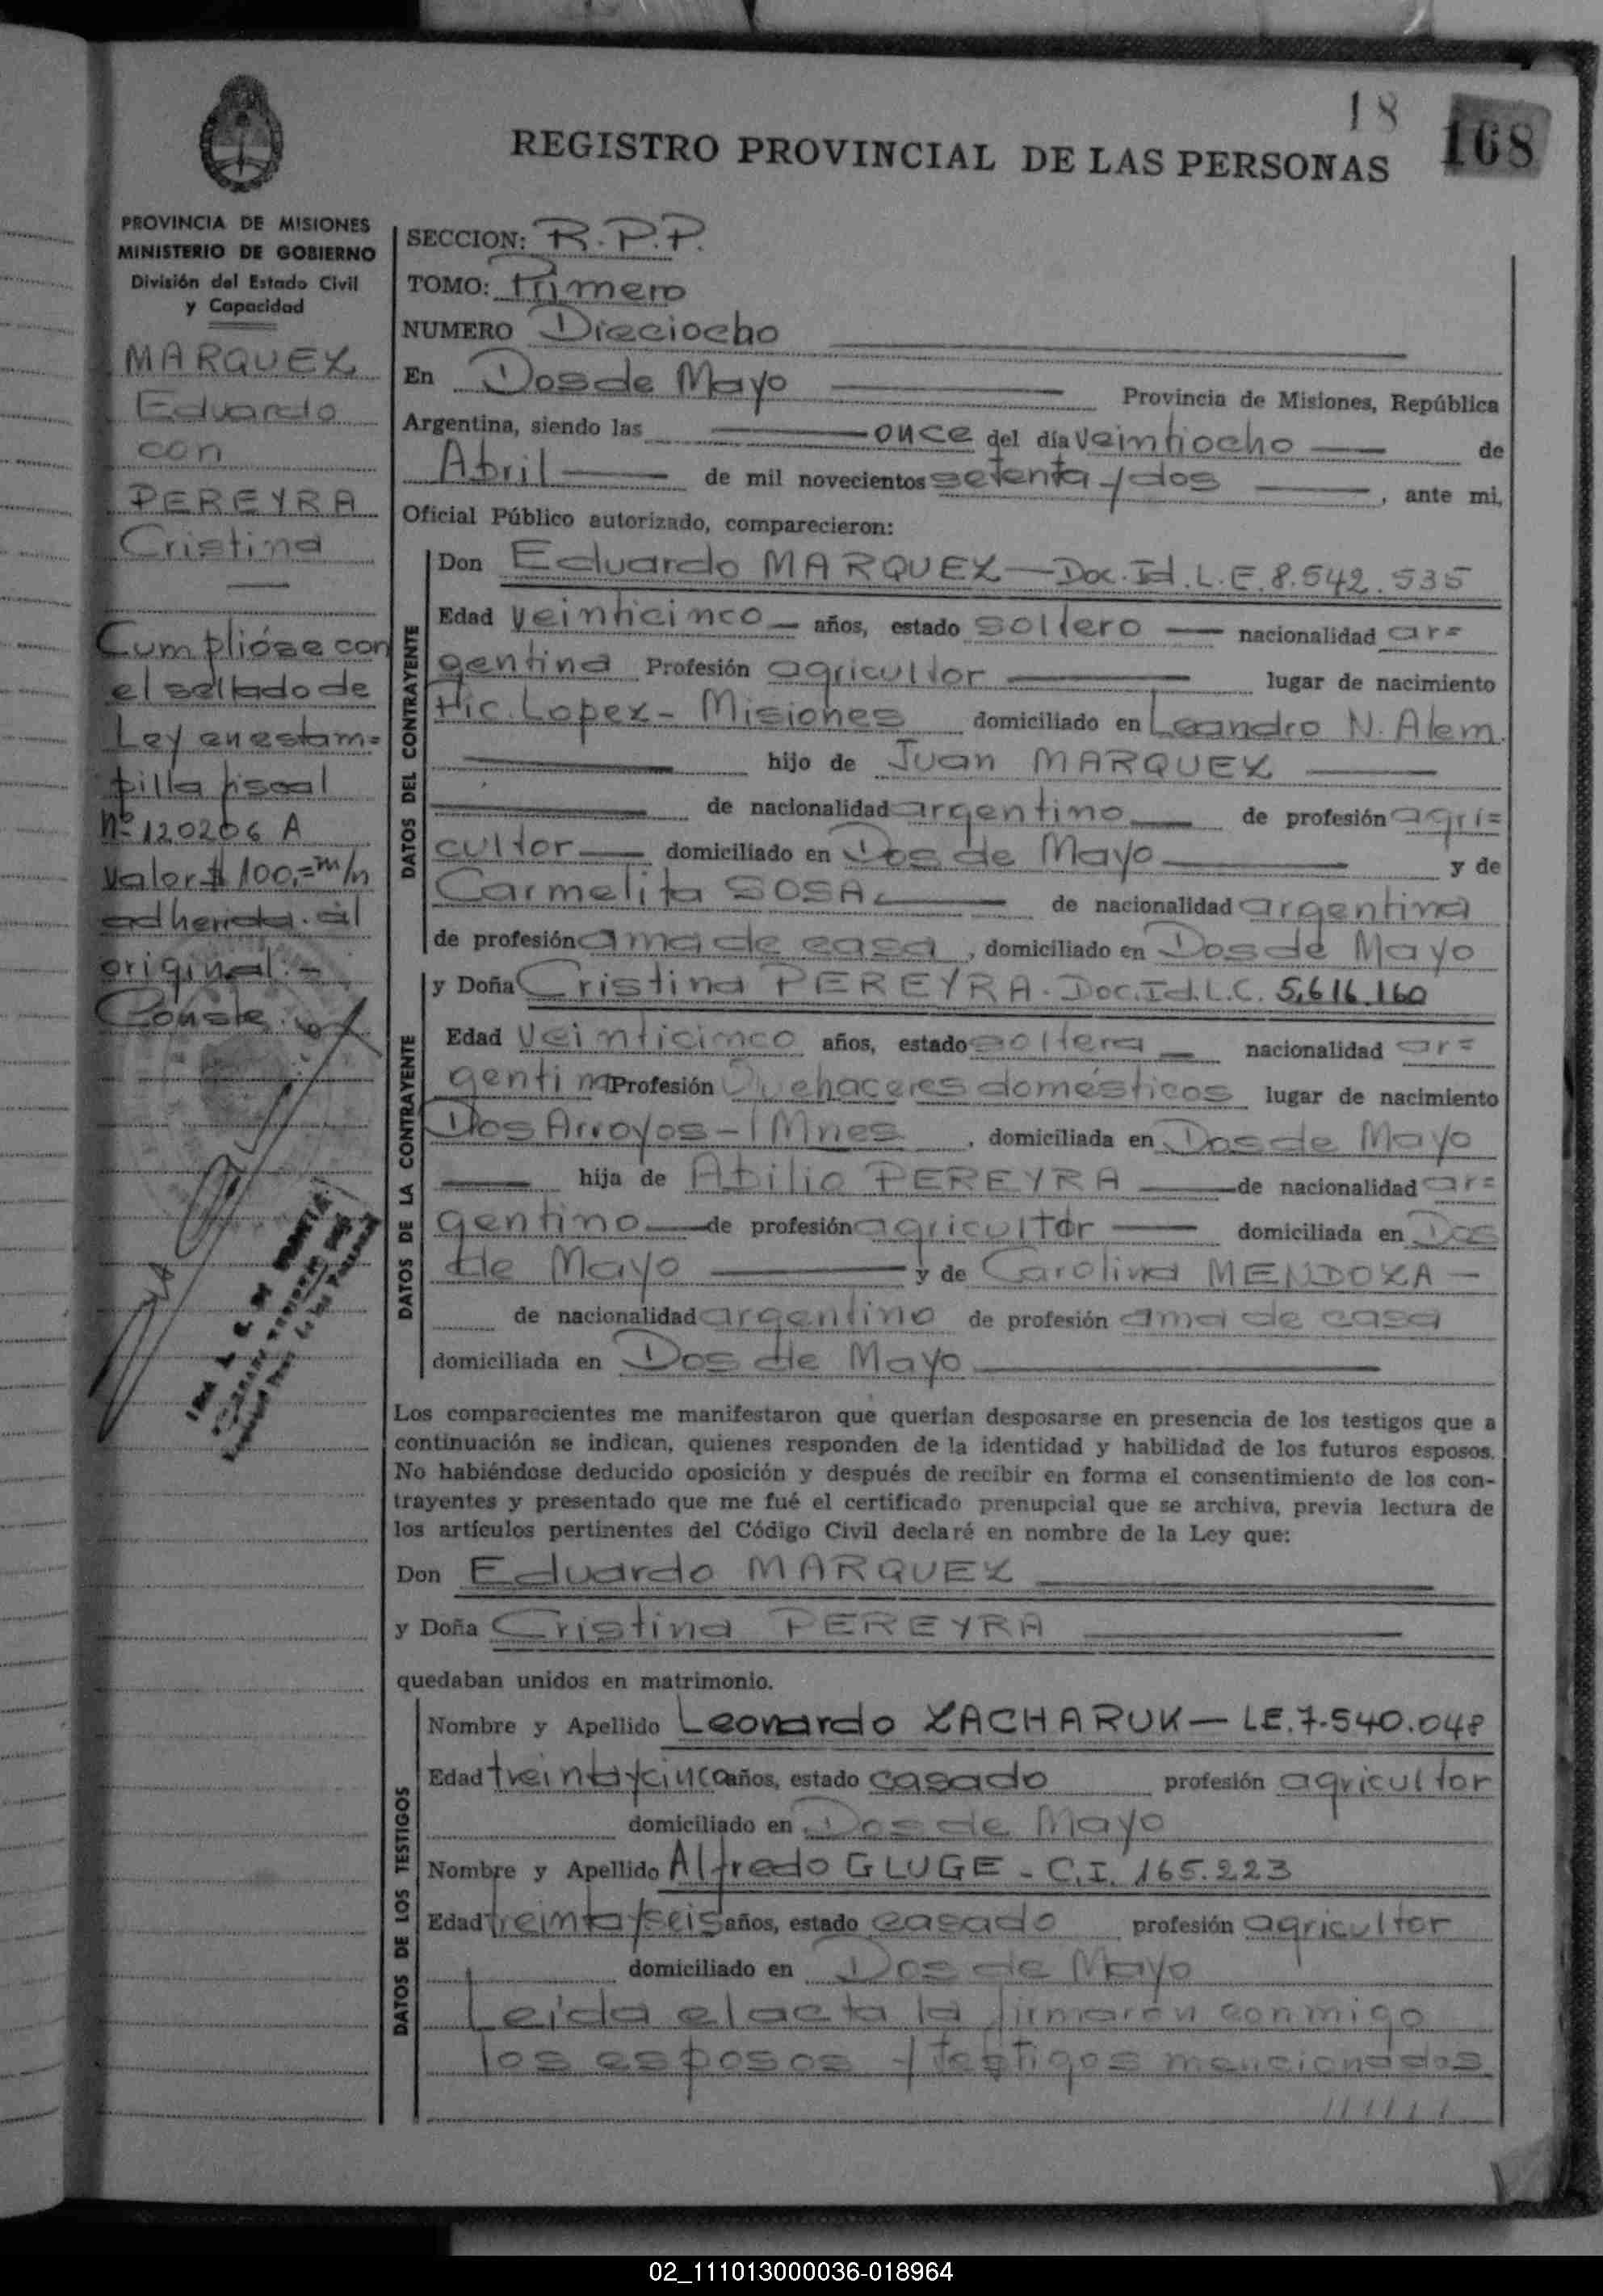 18 168
REGISTRO PROVINCIAL DE LAS PERSONAS
PROVINCIA DE MISIONES
MINISTERIO DE GOBIERNO
División del Estado Civil
y Capacidad
MARQUEZ
Eduardo
con
PEREYRA
Cristina
Cumplióse con
el sellado de
Ley en estam=
pilla fiscal
Nº 120206 A
Valor $ 100,= m/n
adherida al
original.-
Conste
SECCION: R.P.P.
TOMO: Primero
NUMERO Dieciocho
En Dos de Mayo Provincia de Misiones, República
Argentina, siendo las once del día veintiocho de
Abril de mil novecientos setenta y dos, ante mi,
Oficial Público autorizado, comparecieron:
DATOS DEL CONTRAYENTE
Don Eduardo MARQUEZ — Doc. Id. L.E. 8.542.535
Edad veinticinco años, estado soltero nacionalidad ar=
gentina Profesión agricultor lugar de nacimiento
Hic. Lopez - Misiones domiciliado en Leandro N. Alem
hijo de Juan MARQUEZ
de nacionalidad argentino de profesión agri=
cultor domiciliado en Dos de Mayo y de
Carmelita SOSA de nacionalidad argentina
de profesión ama de casa, domiciliado en Dos de Mayo
DATOS DE LA CONTRAYENTE
y Doña Cristina PEREYRA. Doc. Id. L.C. 5,616.160
Edad veinticinco años, estado soltera nacionalidad ar=
gentina Profesión Quehaceres domésticos lugar de nacimiento
Dos Arroyos - Mnes, domiciliada en Dos de Mayo
hija de Abilio PEREYRA de nacionalidad ar=
gentino de profesión agricultor domiciliada en Dos
de Mayo y de Carolina MENDOZA -
de nacionalidad argentino de profesión ama de casa
domiciliada en Dos de Mayo
Los comparecientes me manifestaron que querían desposarse en presencia de los testigos que a
continuación se indican, quienes responden de la identidad y habilidad de los futuros esposos.
No habiéndose deducido oposición y después de recibir en forma el consentimiento de los con-
trayentes y presentado que me fué el certificado prenupcial que se archiva, previa lectura de
los artículos pertinentes del Código Civil declaré en nombre de la Ley que:
Don Eduardo MARQUEZ
y Doña Cristina PEREYRA
quedaban unidos en matrimonio.
DATOS DE LOS TESTIGOS
Nombre y Apellido Leonardo ZACHARUK — LE. 7.540.048
Edad treinta y cinco años, estado casado profesión agricultor
domiciliado en Dos de Mayo
Nombre y Apellido Alfredo GLUGE - C.I. 165.223
Edad treinta y seis años, estado casado profesión agricultor
domiciliado en Dos de Mayo
Leída el acta la firmaron conmigo
los esposos y testigos mencionados
//////
02_111013000036-018964